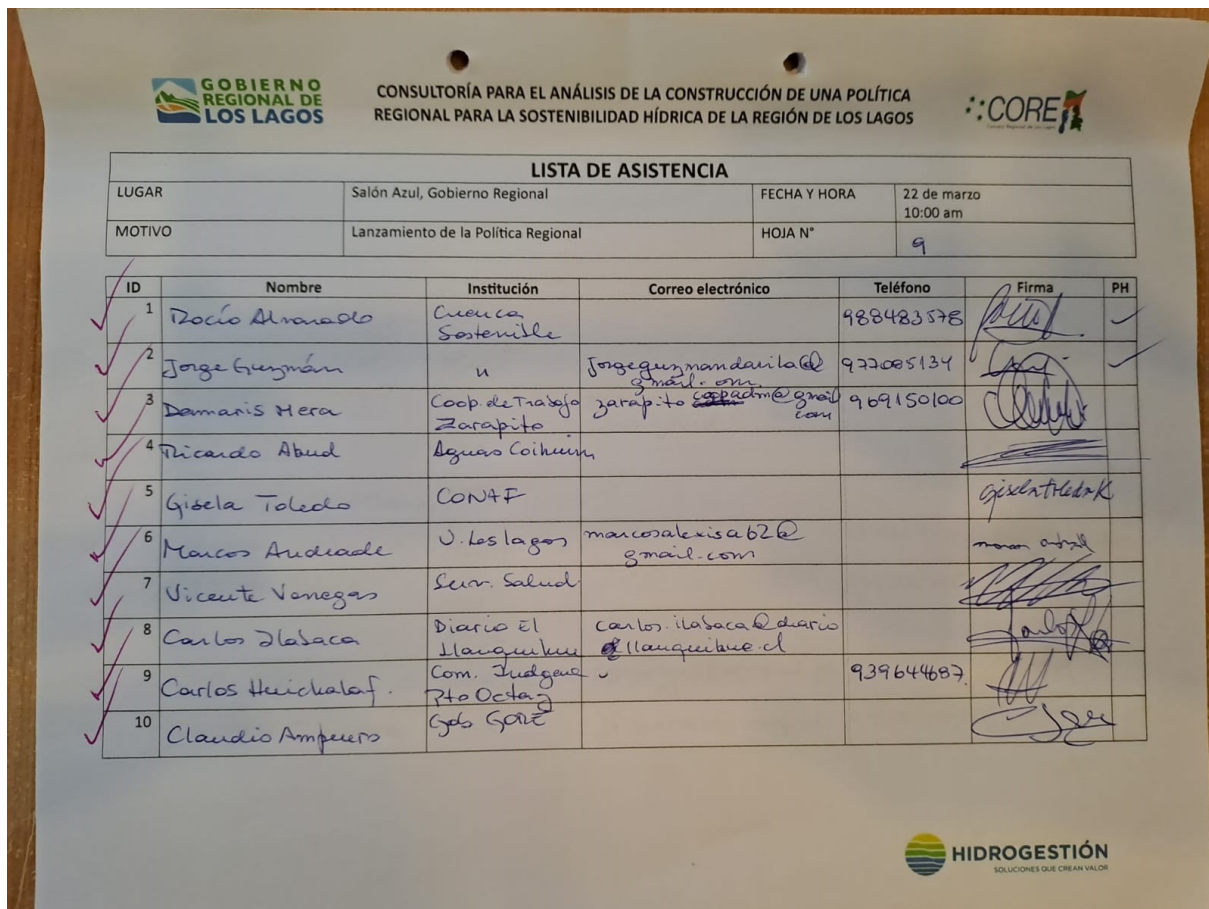 GOBIERNO
REGIONAL DE
LOS LAGOS
CONSULTORÍA PARA EL ANÁLISIS DE LA CONSTRUCCIÓN DE UNA POLÍTICA
REGIONAL PARA LA SOSTENIBILIDAD HÍDRICA DE LA REGIÓN DE LOS LAGOS
CORE
LISTA DE ASISTENCIA
LUGAR Salón Azul, Gobierno Regional FECHA Y HORA 22 de marzo
10:00 am
MOTIVO Lanzamiento de la Política Regional HOJA N° 9
ID Nombre Institución Correo electrónico Teléfono Firma PH
1 Rocío Alvarado Cuenca 988483578
Sostenible
2 Jorge Guzmán " jorgeguzmandavila@ 977085134
gmail.com
3 Damaris Mera Coop. de Trabajo zarapito coopadm@gmail 969150100
Zarapito com
4 Ricardo Abud Aguas Coihuin
5 Gisela Toledo CONAF Gisela Toledo K
6 Marcos Andrade U. Los lagos marcosalexisa62@
gmail.com
7 Vicente Venegas Serv. Salud
8 Carlos Ilabaca Diario El carlos.ilabaca@diario
Llanquihue llanquihue.cl
9 Carlos Huichalaf. Com. Indgena 939644687
Pto Octay
10 Claudio Ampuero Gob GORE
HIDROGESTIÓN
SOLUCIONES QUE CREAN VALOR